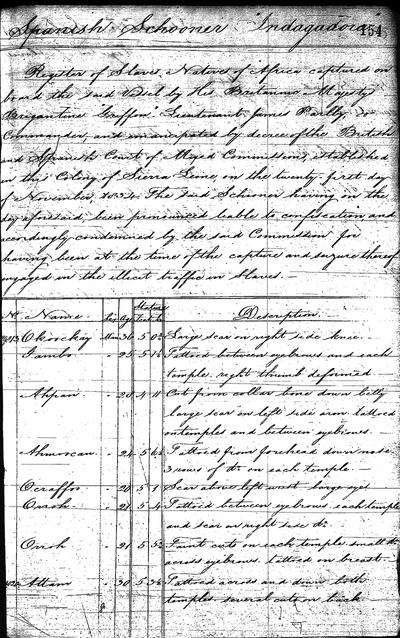 Spanish Schooner "Indagadora" 154
Register of Slaves, Natives of Africa captured on
board the said Vessel by His Britannic Majesty's
Brigantine "Griffon" Lieutenant James
Commander, and emancipated by decree of the British
and Spanish Court of Mixed Commission, established
in this Colony of Sierra Leone, on the twenty first day
of November, 1834. The said Schooner having on the
day aforesaid, been pronounced liable to confiscation and
accordingly condemned by the said Commission for
having been at the time of the capture and seizure thereof
engaged in the illicit traffic in Slaves.
No. Name Sex Age Stature Feet In Description
Man 36 5 Large scar on right side knee
25 5 Tattooed between eyebrows and each
temple, right thumb deformed
Ahpan 20 4 11 Cut from collar bone down belly
large scar on left side arm tattooed
on temples and between eyebrows
24 5 Tattooed from forehead down nose
3 rows of do on each temple
20 5 1 Scar above left large eyes
21 5 Tattooed between eyebrows each temple
and scar on right side do
21 5 Faint cuts on each temple small do
across eyebrows. tattooed on breast
Attam 30 5 Tattooed across and down both
temples several cuts on back